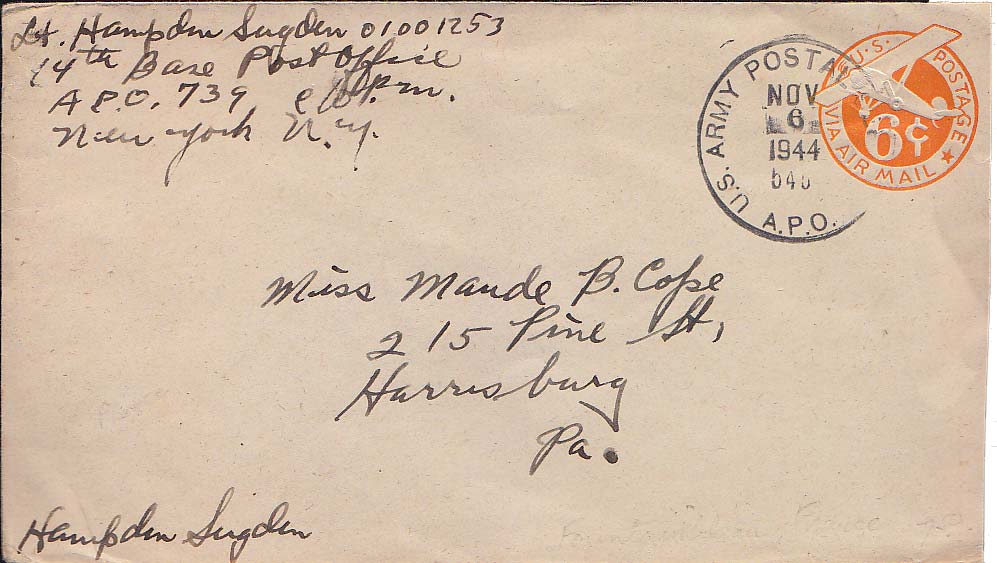 Lt. Hampden Sugden 01001253
14th Base Post Office
A.P.O. 739, c/o P.m.
New York N.Y.
U.S. ARMY POSTAL
NOV
6
1944
A.P.O.
U.S. POSTAGE
6¢
VIA AIR MAIL
Miss Maude B. Cope
215 Pine St,
Harrisburg
Pa.
Hampden Sugden